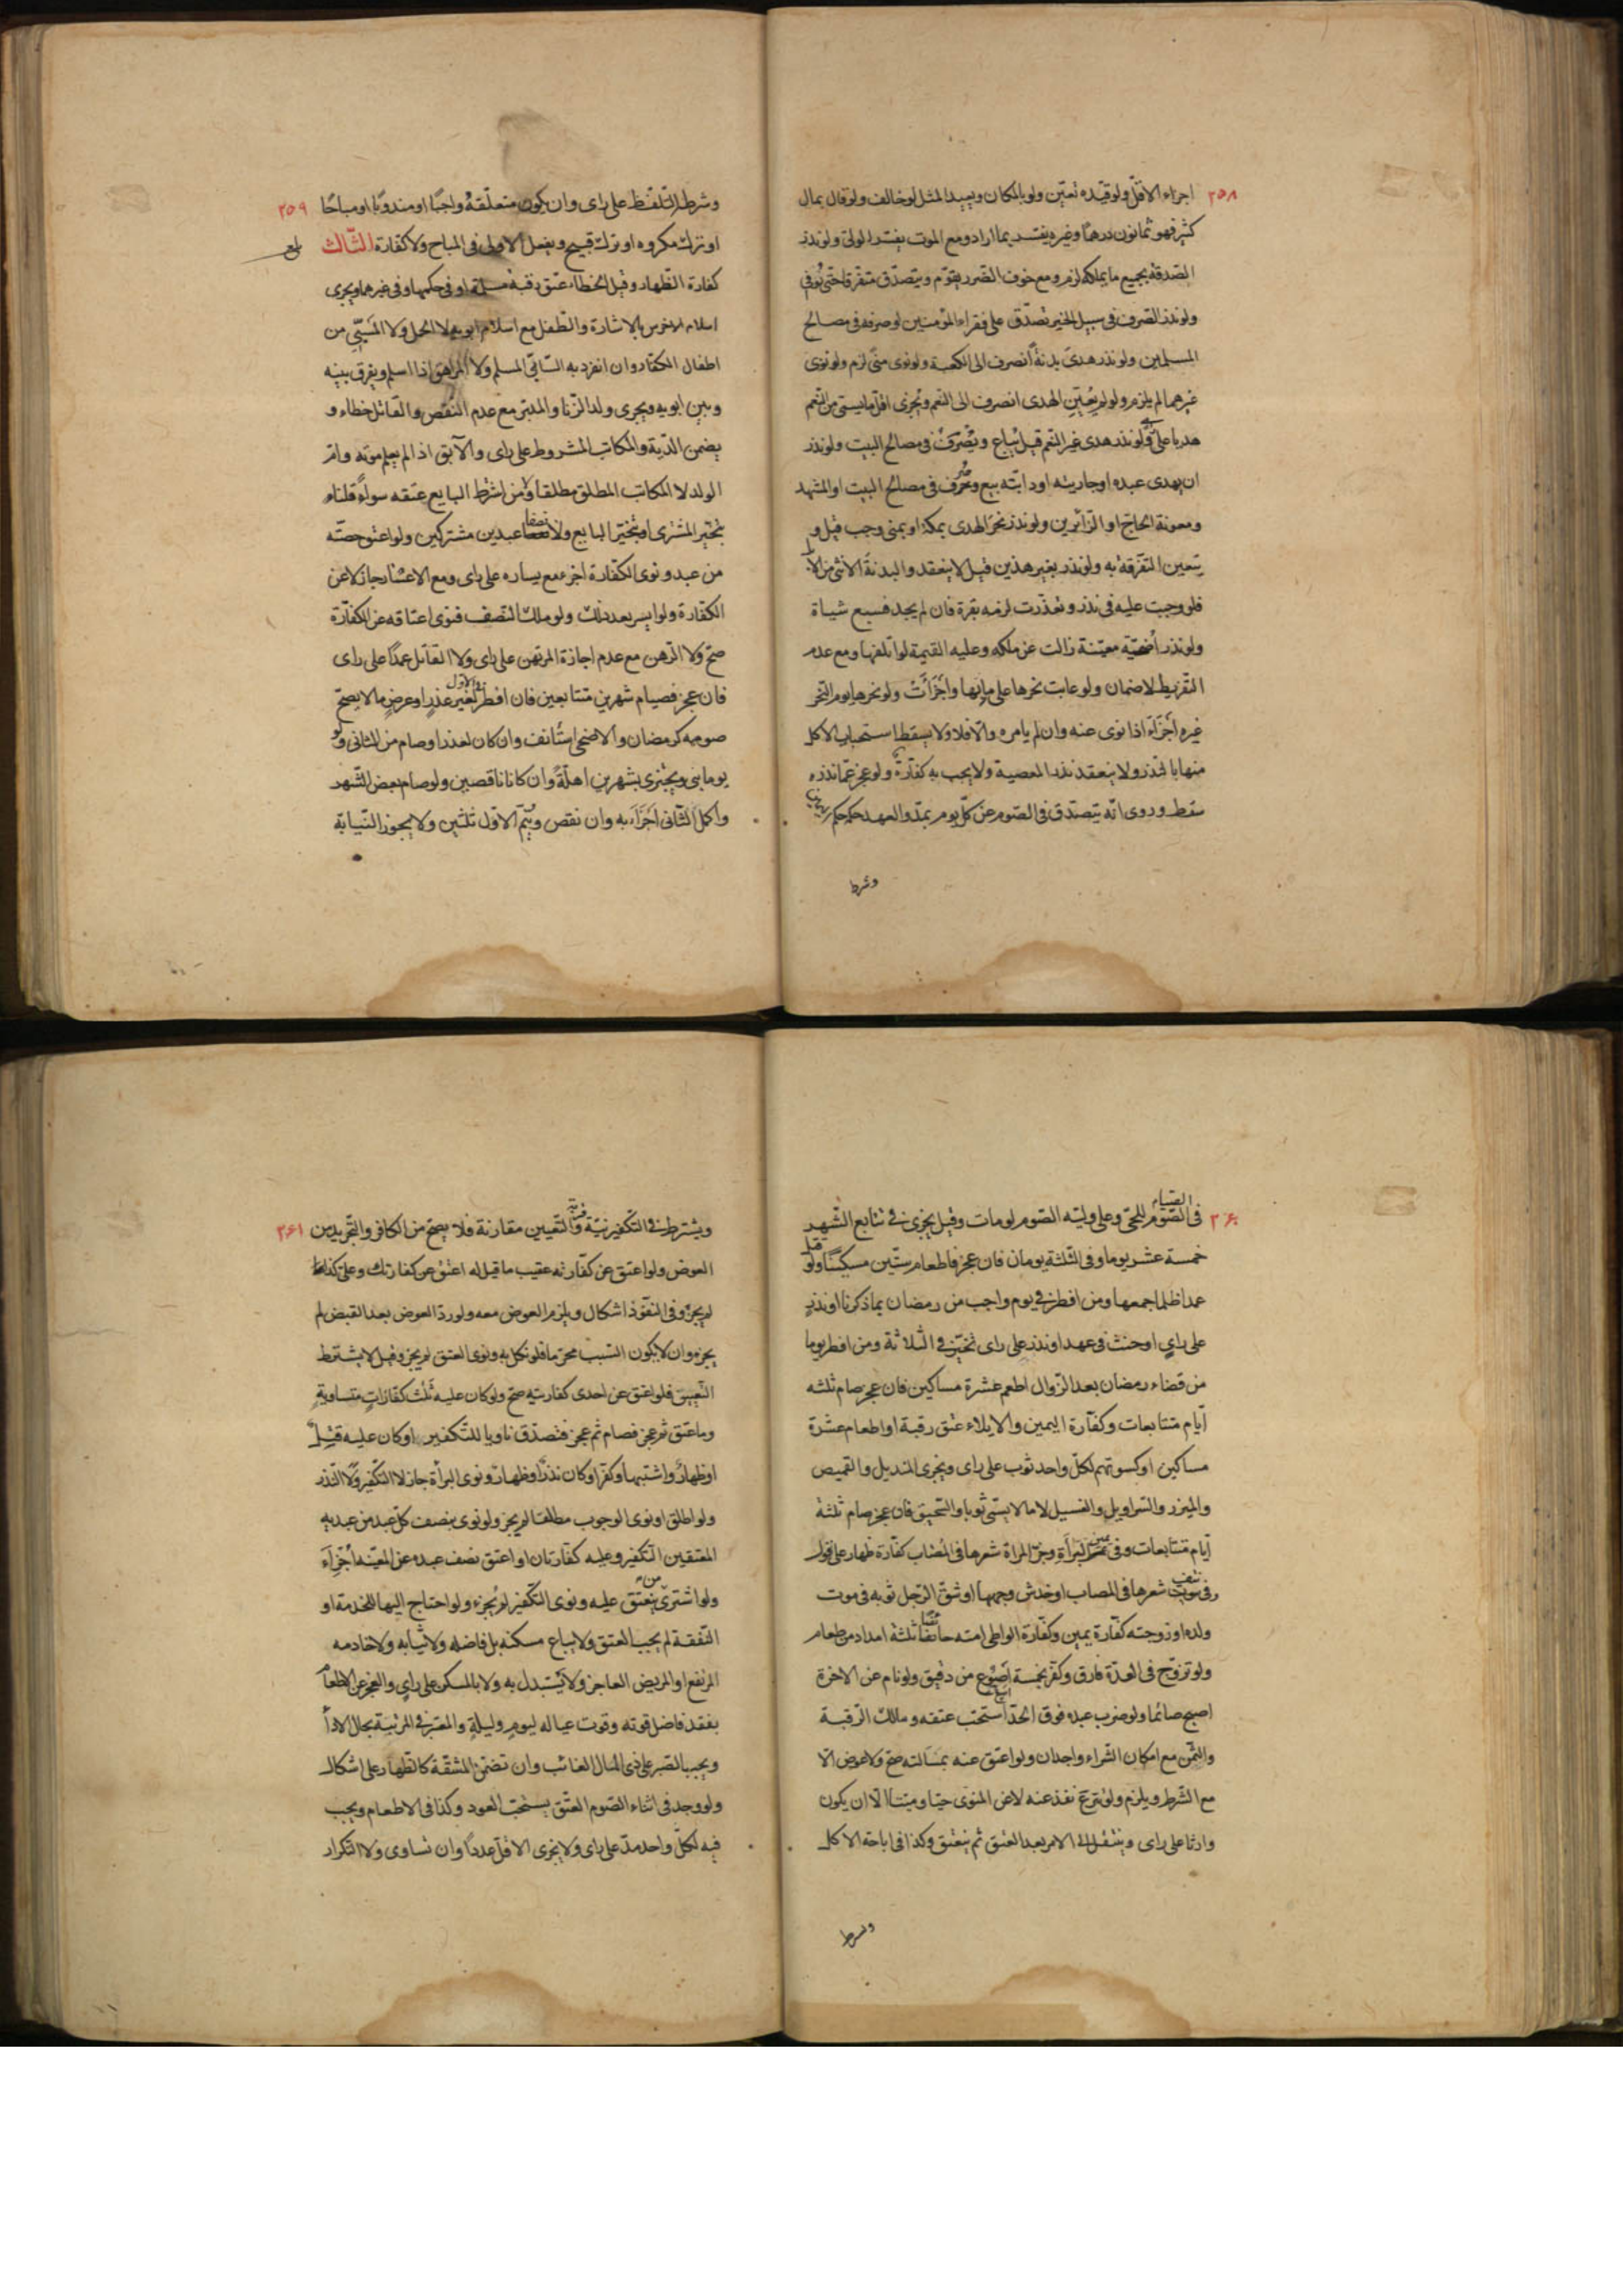 ٢٥٨
اجزاء الاقل ولو قيده تعين ولو بالمكان ويعيد المثل لو خالف ولو قال بمال
كثير فهو ثمانون درهما وغيره يفسر بما اراد ومع الموت يفسر الولى ولو نذر
الصدقة بجميع ما يملكه لزم ومع خوف الضرر يقوم ويتصدق متفرقا حتى يوفى
ولو نذر الصرف فى سبيل الخير تصدق على فقراء المؤمنين او صرفه فى مصالح
المسلمين ولو نذر هدى بدنة انصرف الى الكعبة ولو نوى منى لزم ولو نوى
غيرهما لم يلزم ولو لم يعين الهدى انصرف الى النعم ويجزى اقل ما يسمى من النعم
هديا على راى ولو نذر هدى غير النعم قيل يباع ويصرف فى مصالح البيت ولو نذر
ان يهدى عبده او جاريته او دابته بيع وصرف فى مصالح البيت او المشهد
ومعونة الحاج او الزائرين ولو نذر نحر الهدى بمكة او بمنى وجب قيل و
يتعين التفرقة به ولو نذر بغير هذين قيل لا ينعقد والبدنة الانثى من الابل
فلو وجبت عليه فى نذر وتعذرت لزمه بقرة فان لم يجد فسبع شياة
ولو نذر أضحية معينة زالت عن ملكه وعليه القيمة لو اتلفها ومع عدم
التفريط لا ضمان ولو عابت نحرها على ما بها وأجزأت ولو نحرها يوم النحر
غيره أجزأه اذا نوى عنه وان لم يامره والا فلا ولا يسقط استحباب الاكل
منها بالنذر ولا ينعقد نذر المعصية ولا يجب به كفارة ولو عجز عما نذره
سقط وروى انه يتصدق فى الصوم عن كل يوم بمد والعهد حكمه حكم
وشرط
٢٥٩
وشرطه التلفظ على راى وان يكون متعلقه واجبًا او مندوبًا او مباحًا
او ترك مكروه او ترك قبيح ويفعل الاولى فى المباح ولا كفارة الثالث
كفارة الظهار وقتل الخطاء عتق رقبة مسلمة او فى حكمها وفى غيرهما ويجزى
اسلام الاخرس بالاشارة والطفل مع اسلام ابويه لا الحمل ولا المسبى من
اطفال الكفار وان انفرد به السابى المسلم ولا المراهق اذا اسلم ويفرق بينه
وبين ابويه ويجزى ولد الزنا والمدبر مع عدم النقص والقاتل خطاء و
يضمن الدية والمكاتب المشروط على راى والآبق اذا لم يعلم موته وام
الولد لا المكاتب المطلق مطلقا ولا من اشترط البايع عتقه سواء قلناه
بتخير المشترى او بتخير البايع ولا نصفا عبدين مشتركين ولو اعتق حصته
من عبد ونوى الكفارة اجزء مع يساره على راى ومع الاعسار جاز لا عن
الكفارة ولو ايسر بعد ذلك ولو ملك النصف فنوى اعتاقه عن الكفارة
صح ولا الرهن مع عدم اجازة المرتهن على راى ولا القاتل عمدًا على راى
فان عجز فصيام شهرين متتابعين فان افطر فى الاول لغير عذر او عرض ما لا يصح
صومه كرمضان والاضحى استأنف وان كان لعذر او صام من الثانى ولو
يوما بنى ويجتزى بشهرين اهلة وان كانا ناقصين ولو صام بعض الشهر
واكمل الثانى أجزأه به وان نقص ويتم الاول ثلثين ولا يجوز النيابة
٢٦٠
فى الصوم للحى وعلى وليه الصوم لو مات وقيل يجزى فى تتابع الشهر
خمسة عشر يوما وفى الثلثة يومان فان عجز فاطعام ستين مسكينًا ولو قتل
عمدا ظلما جمعها ومن افطر فى يوم واجب من رمضان بما ذكرنا او نذر
على راى او حنث فى عهد او نذر على راى تخير فى الثلاثة ومن افطر يوما
من قضاء رمضان بعد الزوال اطعم عشرة مساكين فان عجز صام ثلثه
ايام متتابعات وكفارة اليمين والايلاء عتق رقبة او اطعام عشرة
مساكين او كسوتهم لكل واحد ثوب على راى ويجزى المنديل والقميص
والميزر والسراويل والغسيل لا ما لا يسمى ثوبا والسحيق فان عجز صام ثلثة
ايام متتابعات وفى يمين البرأة وجز المراة شعرها فى المصاب كفارة ظهار على قول
وفى نتف شعرها فى المصاب او خدش وجهها او شق الرجل ثوبه فى موت
ولده او زوجته كفارة يمين وكفارة الواطى امته حائضا ثلثة امداد من طعام
ولو تزوج فى العدة فارق وكفر بخمسة اصوع من دقيق ولو نام عن الاخرة
اصبح صائما ولو ضرب عبده فوق الحد استحب عتقه ومالك الرقبة
والثمن مع امكان الشراء واجدان ولو اعتق عنه بمسألته صح ولا عوض الا
مع الشرط ويلزم ولو تبرع نفذ عنه لا عن المنوى حيا وميتا الا ان يكون
وارثا على راى وينتقل الى الامر بعد العتق ثم ينعتق وكذا فى اباحة الاكل
ويشرط
٢٦١
ويشترط فى التكفير نية والتعيين مقارنة فلا يصح من الكافر والتجريد من
العوض ولو اعتق عن كفارته عقيب ما قيل له اعتق عن كفارتك وعلى كذا
لم يجز وفى النفوذ اشكال ويلزم العوض معه ولو رد العوض بعد القبض لم
يجزه وان لا يكون السبب محرما فلو نكل به ونوى العتق لم يجز وقيل لا يشترط
التعيين فلو اعتق عن احدى كفارتيه صح ولو كان عليه ثلث كفارات متساوية
وما عتق ثم عجز فصام ثم عجز فتصدق ناويا للتكفير او كان عليه قتل
او ظهار واشتبها وكفر او كان نذرا وظهار ونوى البرأة جاز لا التكفير ولا النذر
ولو اطلق او نوى الوجوب مطلقا لم يجز ولو نوى بنصف كل عبد من عبديه
المعتقين التكفير وعليه كفارتان او اعتق نصف عبده عن المعينه أجزأه
ولو اشترى من ينعتق عليه ونوى التكفير لم يجزه ولو احتاج اليها للخدمة او
النفقة لم يجب العتق ولا يباع مسكنه بل فاضله ولا ثيابه ولا خادمه
المرتفع او المريض العاجز ولا يستبدل به ولا بالمسكن على راى والعجز عن الاطعام
بفقد فاضل قوته وقوت عياله ليوم وليلة والمعتبر فى المرتبة بحال الادأ
ويجب الصبر على ذى المال الغائب وان تضمن المشقة كالظهار على اشكال
ولو وجد فى اثناء الصوم العتق يستحب العود وكذا فى الاطعام ويجب
فيه لكل واحد مد على راى ولا يجزى الاقل عددا وان تساوى ولا التكرار